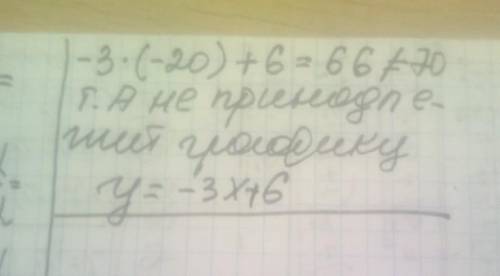 -3·(-20)+6=66≠70
т. А не принадле-
жит графику
y=-3x+6